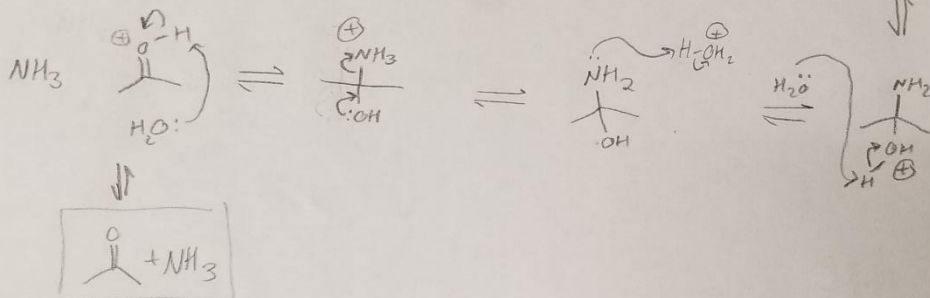 ⊕
NH3
⊕
O-H
H2O:
⇌
⊕
NH3
:OH
⇌
NH2
OH
H-OH2
⊕
⇌
H2O
NH2
OH
H
⊕
O
+NH3